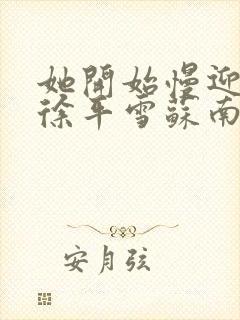 她開始慢迎
徐平雪蘇南
安月弦